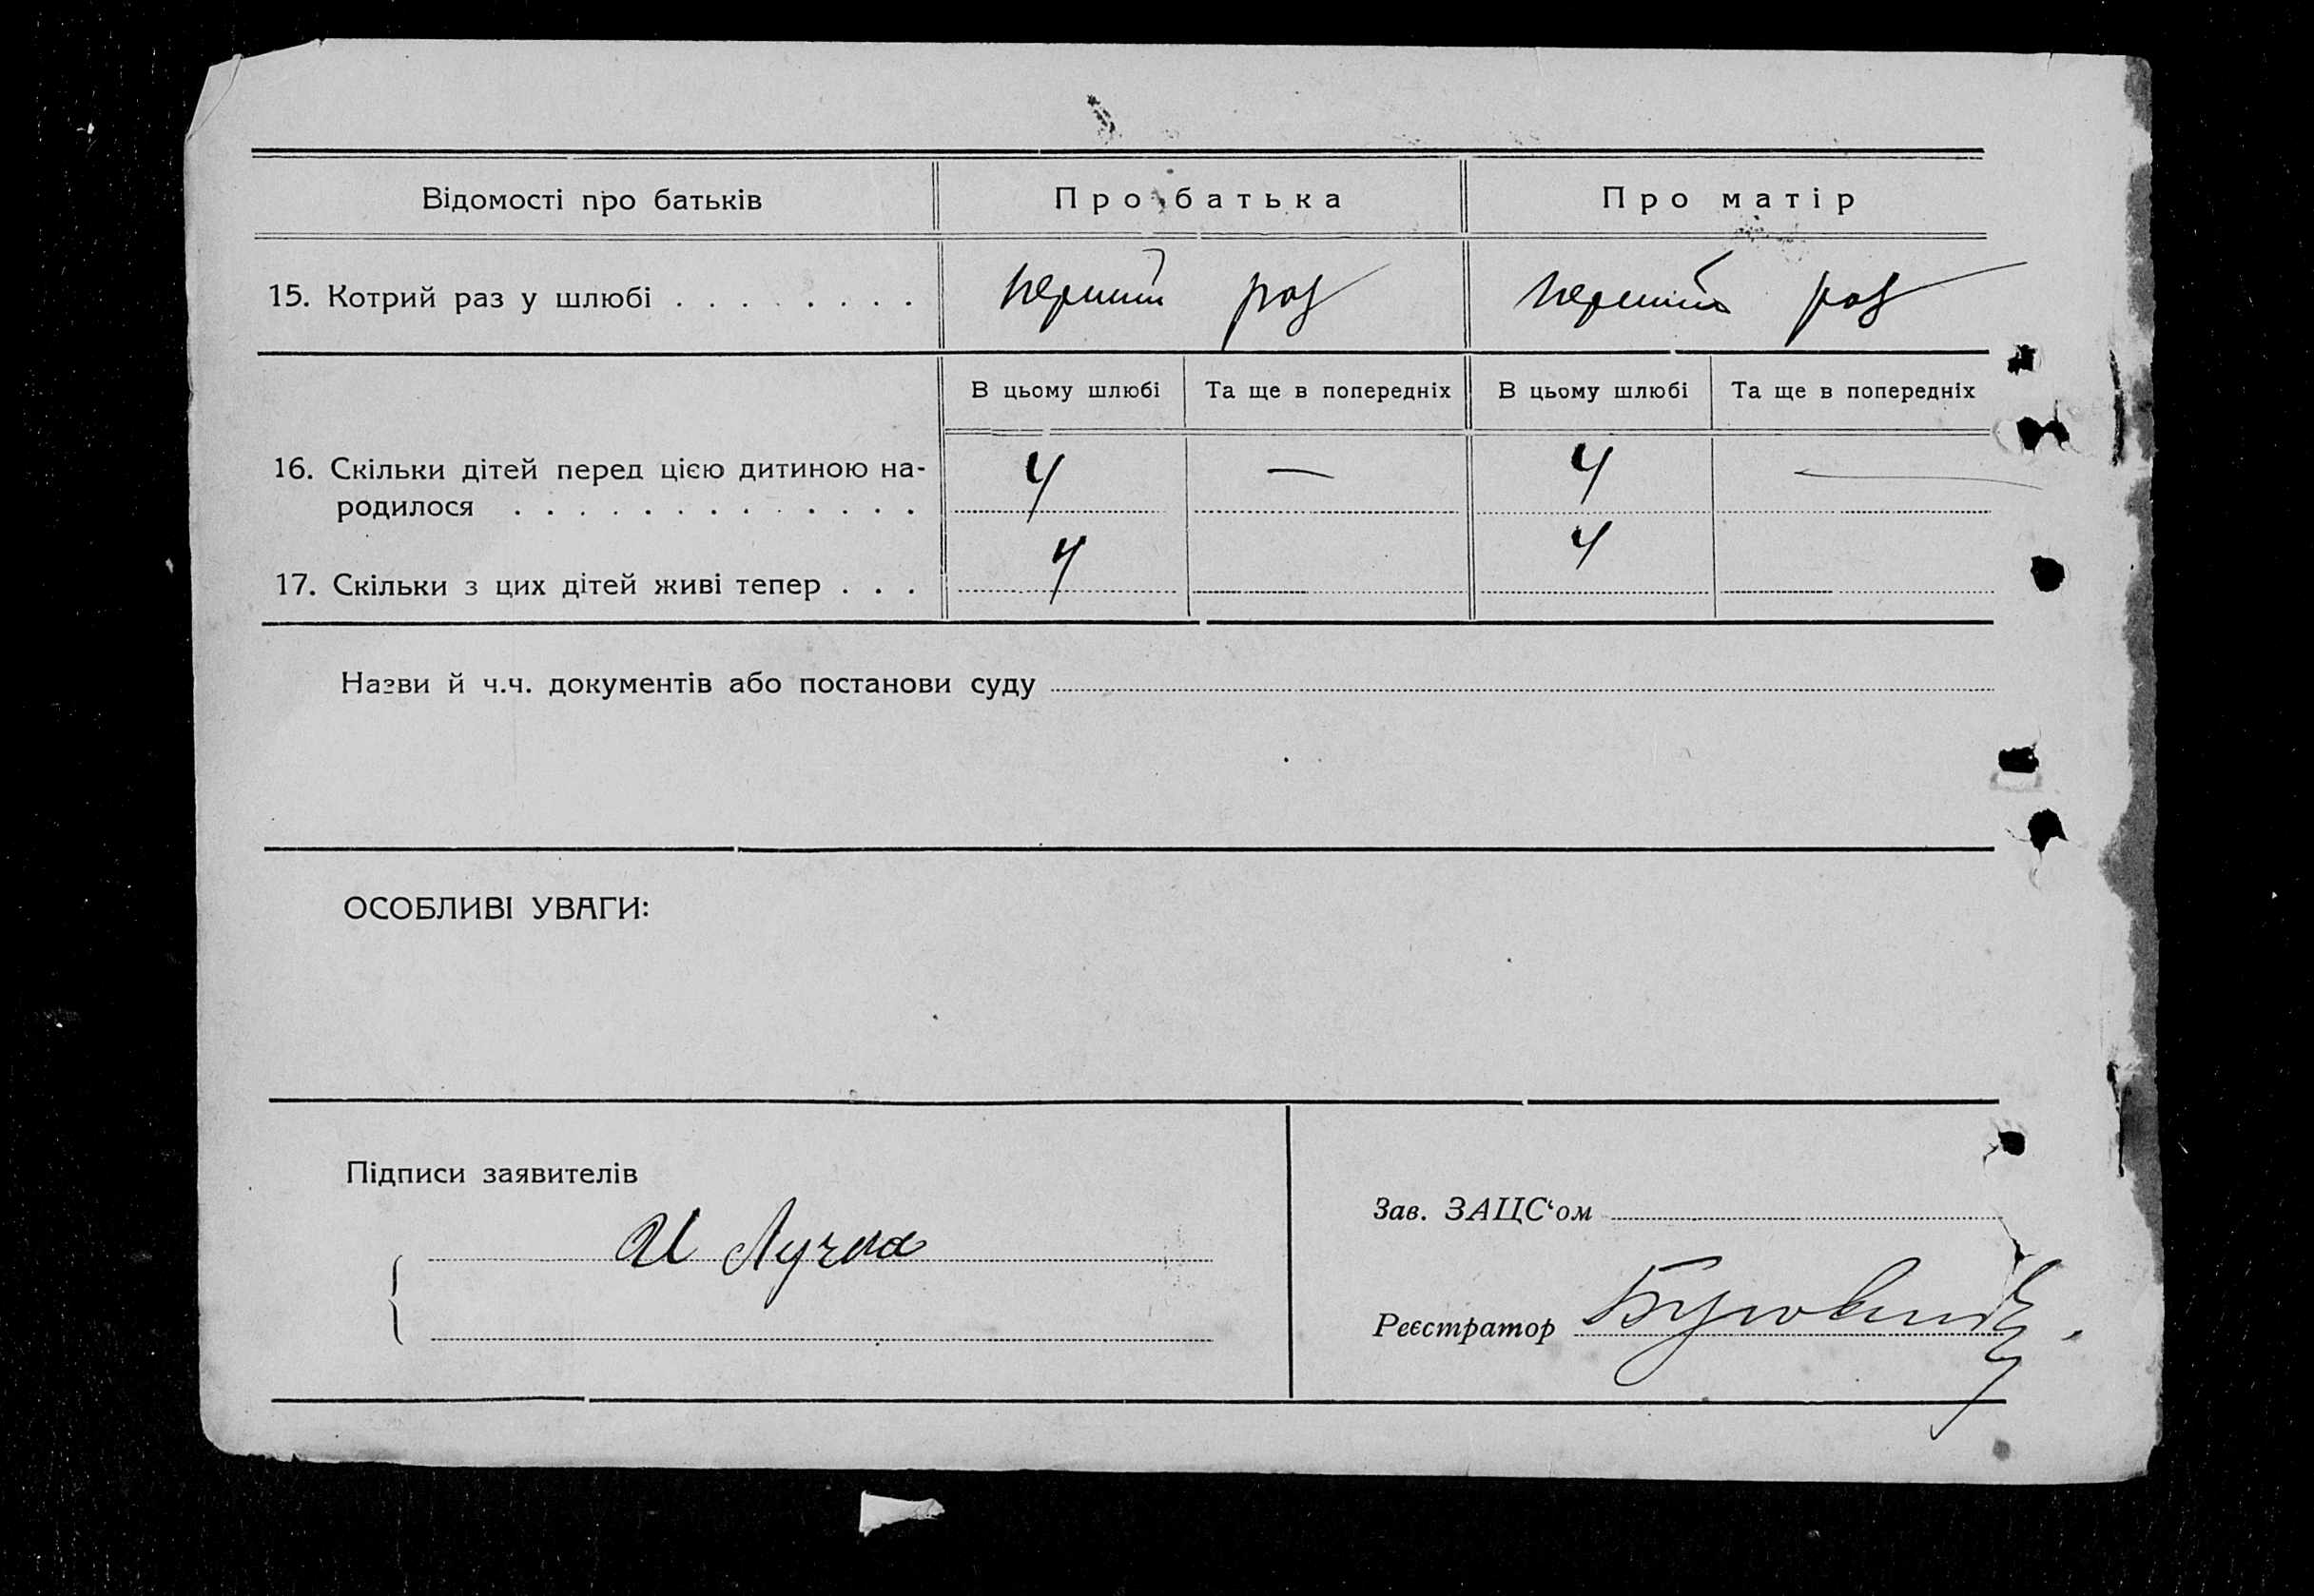 Відомості про батьків Про батька Про матір
15. Котрий раз у шлюбі . . . . . . . . перший раз перший раз
В цьому шлюбі Та ще в попередніх В цьому шлюбі Та ще в попередніх
16. Скільки дітей перед цією дитиною на-
родилося . . . . . . . . . . . . . 4 — 4 —
17. Скільки з цих дітей живі тепер . . . 4 4
Назви й ч.ч. документів або постанови суду
ОСОБЛИВІ УВАГИ:
Підписи заявителів
И
Зав. ЗАЦС‘ом
Реєстратор